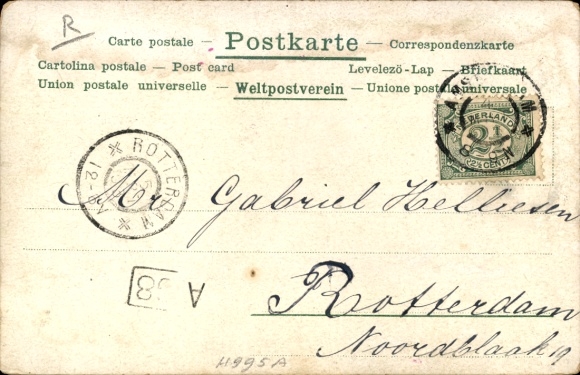 R
Carte postale — Postkarte — Correspondenzkarte
Cartolina postale — Post card Levelező-Lap — Briefkaart
Union postale universelle — Weltpostverein — Unione postale universale
NEDERLAND
2½
2½ CENT
ROTTERDAM
12-
Mr. Gabriel Helliesen
Rotterdam
Noordblaak 19
A
H995A